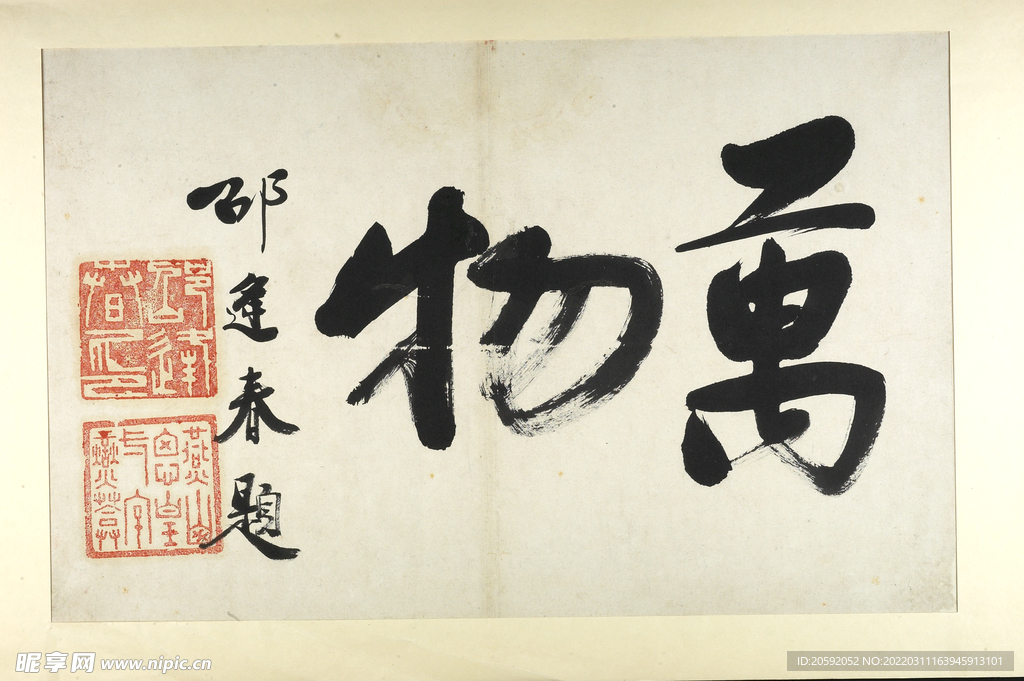 萬物
邵逢春題
昵享网 www.nipic.cn
ID:20592052 NO:20220311163945913101